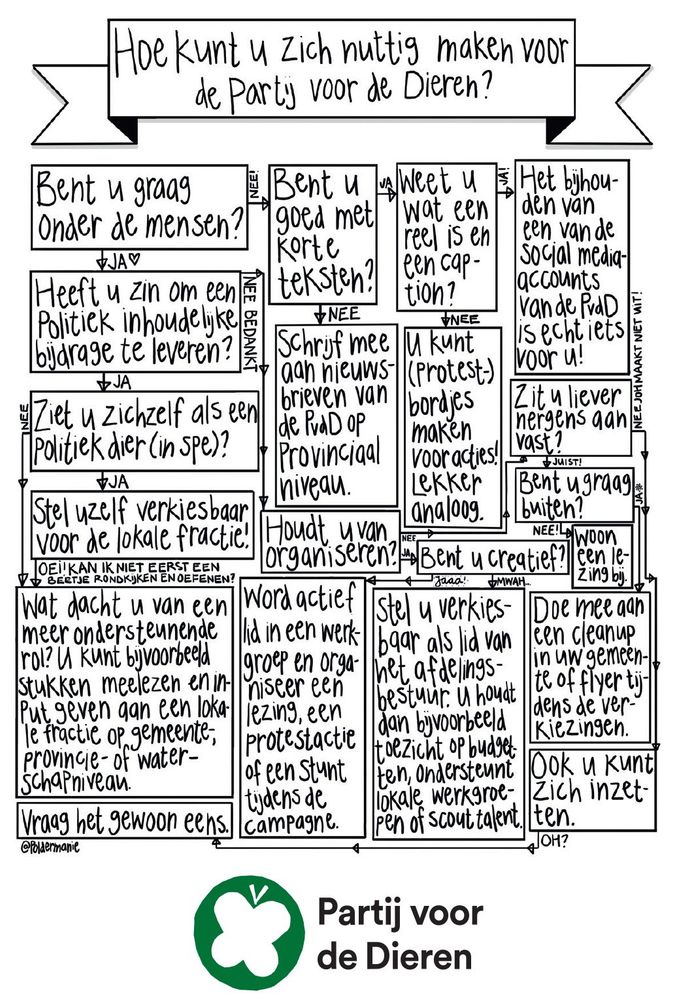 Hoe kunt u zich nuttig maken voor
de Partij voor de Dieren?
Bent u graag
onder de mensen?
NEE!
JA♡
Bent u
goed met
korte
teksten?
JA
NEE
Weet u
wat een
reel is en
een cap-
tion?
JA!
NEE
Het bijhou-
den van
een van de
social media-
accounts
van de PvdD
is echt iets
voor u!
Heeft u zin om een
Politiek inhoudelijke
bijdrage te leveren?
NEE BEDANKT
JA
Schrijf mee
aan nieuws-
brieven van
de PvdD op
Provinciaal
niveau.
U kunt
(Protest-)
bordjes
maken
voor acties!
Lekker
analoog.
Zit u liever
nergens aan
vast?
NEE JOH MAAKT NIET UIT!
JUIST!
Ziet u zichzelf als een
Politiek dier (in spe)?
NEE
JA
Bent u graag
buiten?
JA
NEE!
Stel uzelf verkiesbaar
voor de lokale fractie!
OEI! KAN IK NIET EERST EEN
BEETJE RONDKIJKEN EN OEFENEN?
Houdt u van
organiseren?
NEE
JA
Bent u creatief?
Jaaa!
MWAH...
Woon
een le-
zing bij.
Wat dacht u van een
meer ondersteunende
rol? U kunt bijvoorbeeld
stukken meelezen en in-
Put geven aan een loka-
le fractie op gemeente-,
provincie- of water-
schapniveau.
Word actief
lid in een werk-
groep en orga-
niseer een
lezing, een
protestactie
of een stunt
tijdens de
campagne.
Stel u verkies-
baar als lid van
het afdelings-
bestuur. U houdt
dan bijvoorbeeld
toezicht op budget-
ten, ondersteunt
lokale werkgroe-
pen of scout talent.
Doe mee aan
een cleanup
in uw gemeen-
te of flyer tij-
dens de ver-
kiezingen.
Ook u kunt
zich inzet-
ten.
OH?
Vraag het gewoon eens.
@Poldermanie
Partij voor
de Dieren